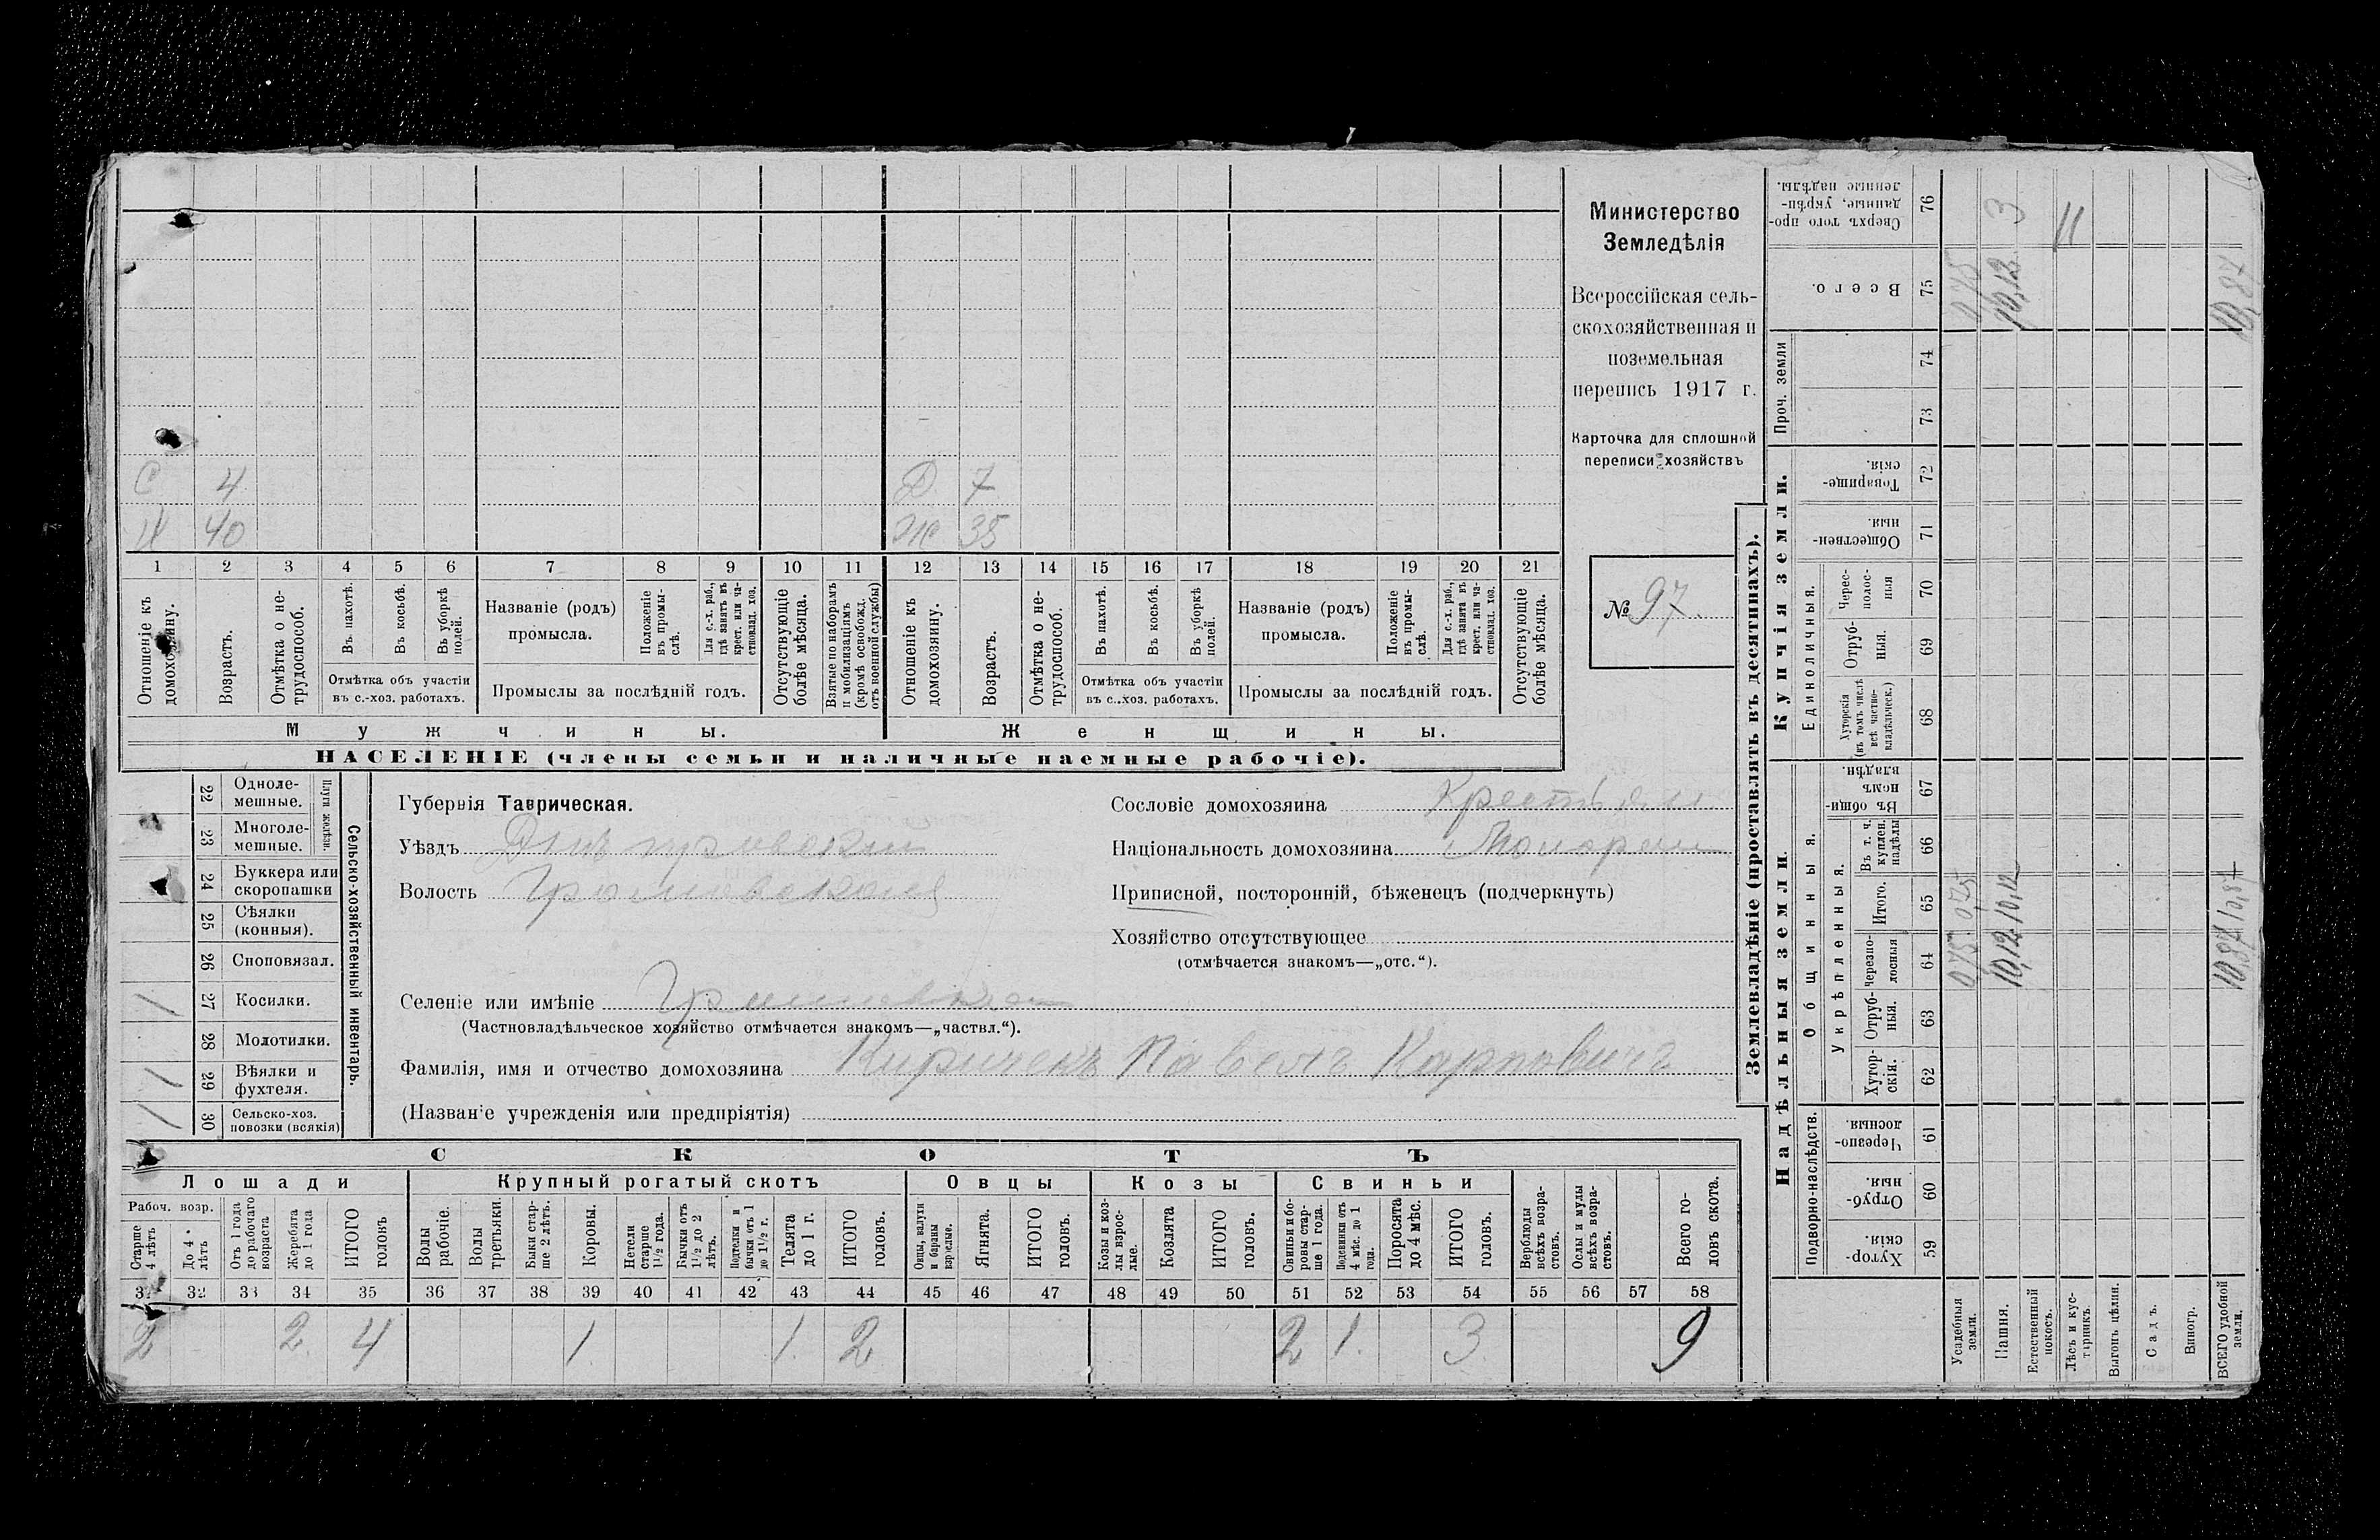 Министерство
Земледѣлія
Всероссійская сель-
скохозяйственная и
поземельная
перепись 1917 г.
Карточка для сплошной
переписи хозяйствъ
№ 97.
С 4 Д 7
Х 40 Ж 35
1 2 3 4 5 6 7 8 9 10 11 12 13 14 15 16 17 18 19 20 21
Отношеніе къ домохозяину.
Возрастъ.
Отмѣтка о не-трудоспособ.
Въ пахотѣ.
Въ косьбѣ.
Въ уборкѣ полей.
Отмѣтка объ участіи
въ с.-хоз. работахъ.
Названіе (родъ)
промысла.
Положеніе въ промы-слѣ.
Для с.-х. раб., гдѣ занятъ въ крест. или ча-стновлад. хоз.
Промыслы за послѣдній годъ.
Отсутствующіе болѣе мѣсяца.
Взятые по наборамъ и мобилизаціямъ (кромѣ освобожд. отъ военной службы)
Отношеніе къ домохозяину.
Возрастъ.
Отмѣтка о не-трудоспособ.
Въ пахотѣ.
Въ косьбѣ.
Въ уборкѣ полей.
Отмѣтка объ участіи
въ с.-хоз. работахъ.
Названіе (родъ)
промысла.
Положеніе въ промы-слѣ.
Для с.-х. раб., гдѣ занята въ крест. или ча-стновлад. хоз.
Промыслы за послѣдній годъ.
Отсутствующіе болѣе мѣсяца.
Мужчины. Женщины.
НАСЕЛЕНІЕ (члены семьи и наличные наемные рабочіе).
Сельско-хозяйственный инвентарь.
Плуги желѣзн.
22 Одноле-мешные.
23 Многоле-мешные.
24 Буккера или скоропашки
25 Сѣялки (конныя).
26 Сноповязал.
1 27 Косилки.
28 Молотилки.
1 29 Вѣялки и фухтеля.
1 30 Сельско-хоз. повозки (всякія)
Губернія Таврическая.
Уѣздъ Днѣпровскій
Волость
Сословіе домохозяина Крестьян
Національность домохозяина
Приписной, посторонній, бѣженецъ (подчеркнуть)
Хозяйство отсутствующее
(отмѣчается знакомъ—„отс.“).
Селеніе или имѣніе
(Частновладѣльческое хозяйство отмѣчается знакомъ—„частвл.“).
Фамилія, имя и отчество домохозяина Киричекъ Павелъ Карповичъ
(Названіе учрежденія или предпріятія)
СКОТЪ
Лошади Крупный рогатый скотъ Овцы Козы Свиньи
Рабоч. возр.
Старше 4 лѣтъ
До 4 лѣтъ
Отъ 1 года до рабочаго возраста
Жеребята до 1 года
ИТОГО головъ
Волы рабочіе.
Волы третьяки.
Быки стар-ше 2 лѣтъ.
Коровы.
Нетели старше 1½ года.
Бычки отъ 1½ до 2 лѣтъ.
Подтелки и бычки отъ 1 до 1½ г.
Телята до 1 г.
ИТОГО головъ.
Овцы, валухи и бараны взрослые.
Ягнята.
ИТОГО головъ.
Козы и коз-лы взрос-лые.
Козлята
ИТОГО головъ.
Свиньи и бо-ровы стар-ше 1 года.
Подсвинки отъ 4 мѣс. до 1 года.
Поросята до 4 мѣс.
ИТОГО головъ.
Верблюды всѣхъ возра-стовъ.
Ослы и мулы всѣхъ возра-стовъ.
Всего го-ловъ скота.
31 32 33 34 35 36 37 38 39 40 41 42 43 44 45 46 47 48 49 50 51 52 53 54 55 56 57 58
2 2 4 1 1 2 2 1 3 9
Землевладѣніе (проставлять въ десятинахъ).
Надѣльныя земли. Купчія земли. Проч. земли
Подворно-наслѣдств.
Общинныя.
Укрѣпленныя.
Единоличныя.
Хутор-скія. 59
Отруб-ныя. 60
Черезпо-лосныя. 61
Хутор-скія. 62
Отруб-ныя. 63
Черезпо-лосныя 64
Итого. 65
Въ т. ч. куплен. надѣлы 66
Въ общи-номъ владѣн. 67
Хуторскія (въ томъ числѣ всѣ частно-владѣльческ.) 68
Отруб-ныя. 69
Черес-полос-ныя 70
Обществен-ныя. 71
Товарище-скія. 72
73
74
Всего. 75
Сверхъ того про-данные, укрѣп-ленные надѣлы. 76
Усадебныя земли. 0,75 0,75 0,75
Пашня. 10,12 10,12 10,12 3
Естественный покосъ. 11
Лѣсъ и кус-тарникъ.
Выгонъ цѣлин.
Садъ.
Виногр.
ВСЕГО удобной земли. 10,87 10,87 10,87